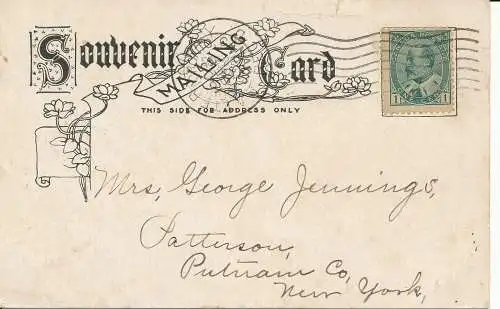 Souvenir Mailing Card
THIS SIDE FOR ADDRESS ONLY
1 1
Mrs. George Jennings,
Patterson,
Putnam Co,
New York,